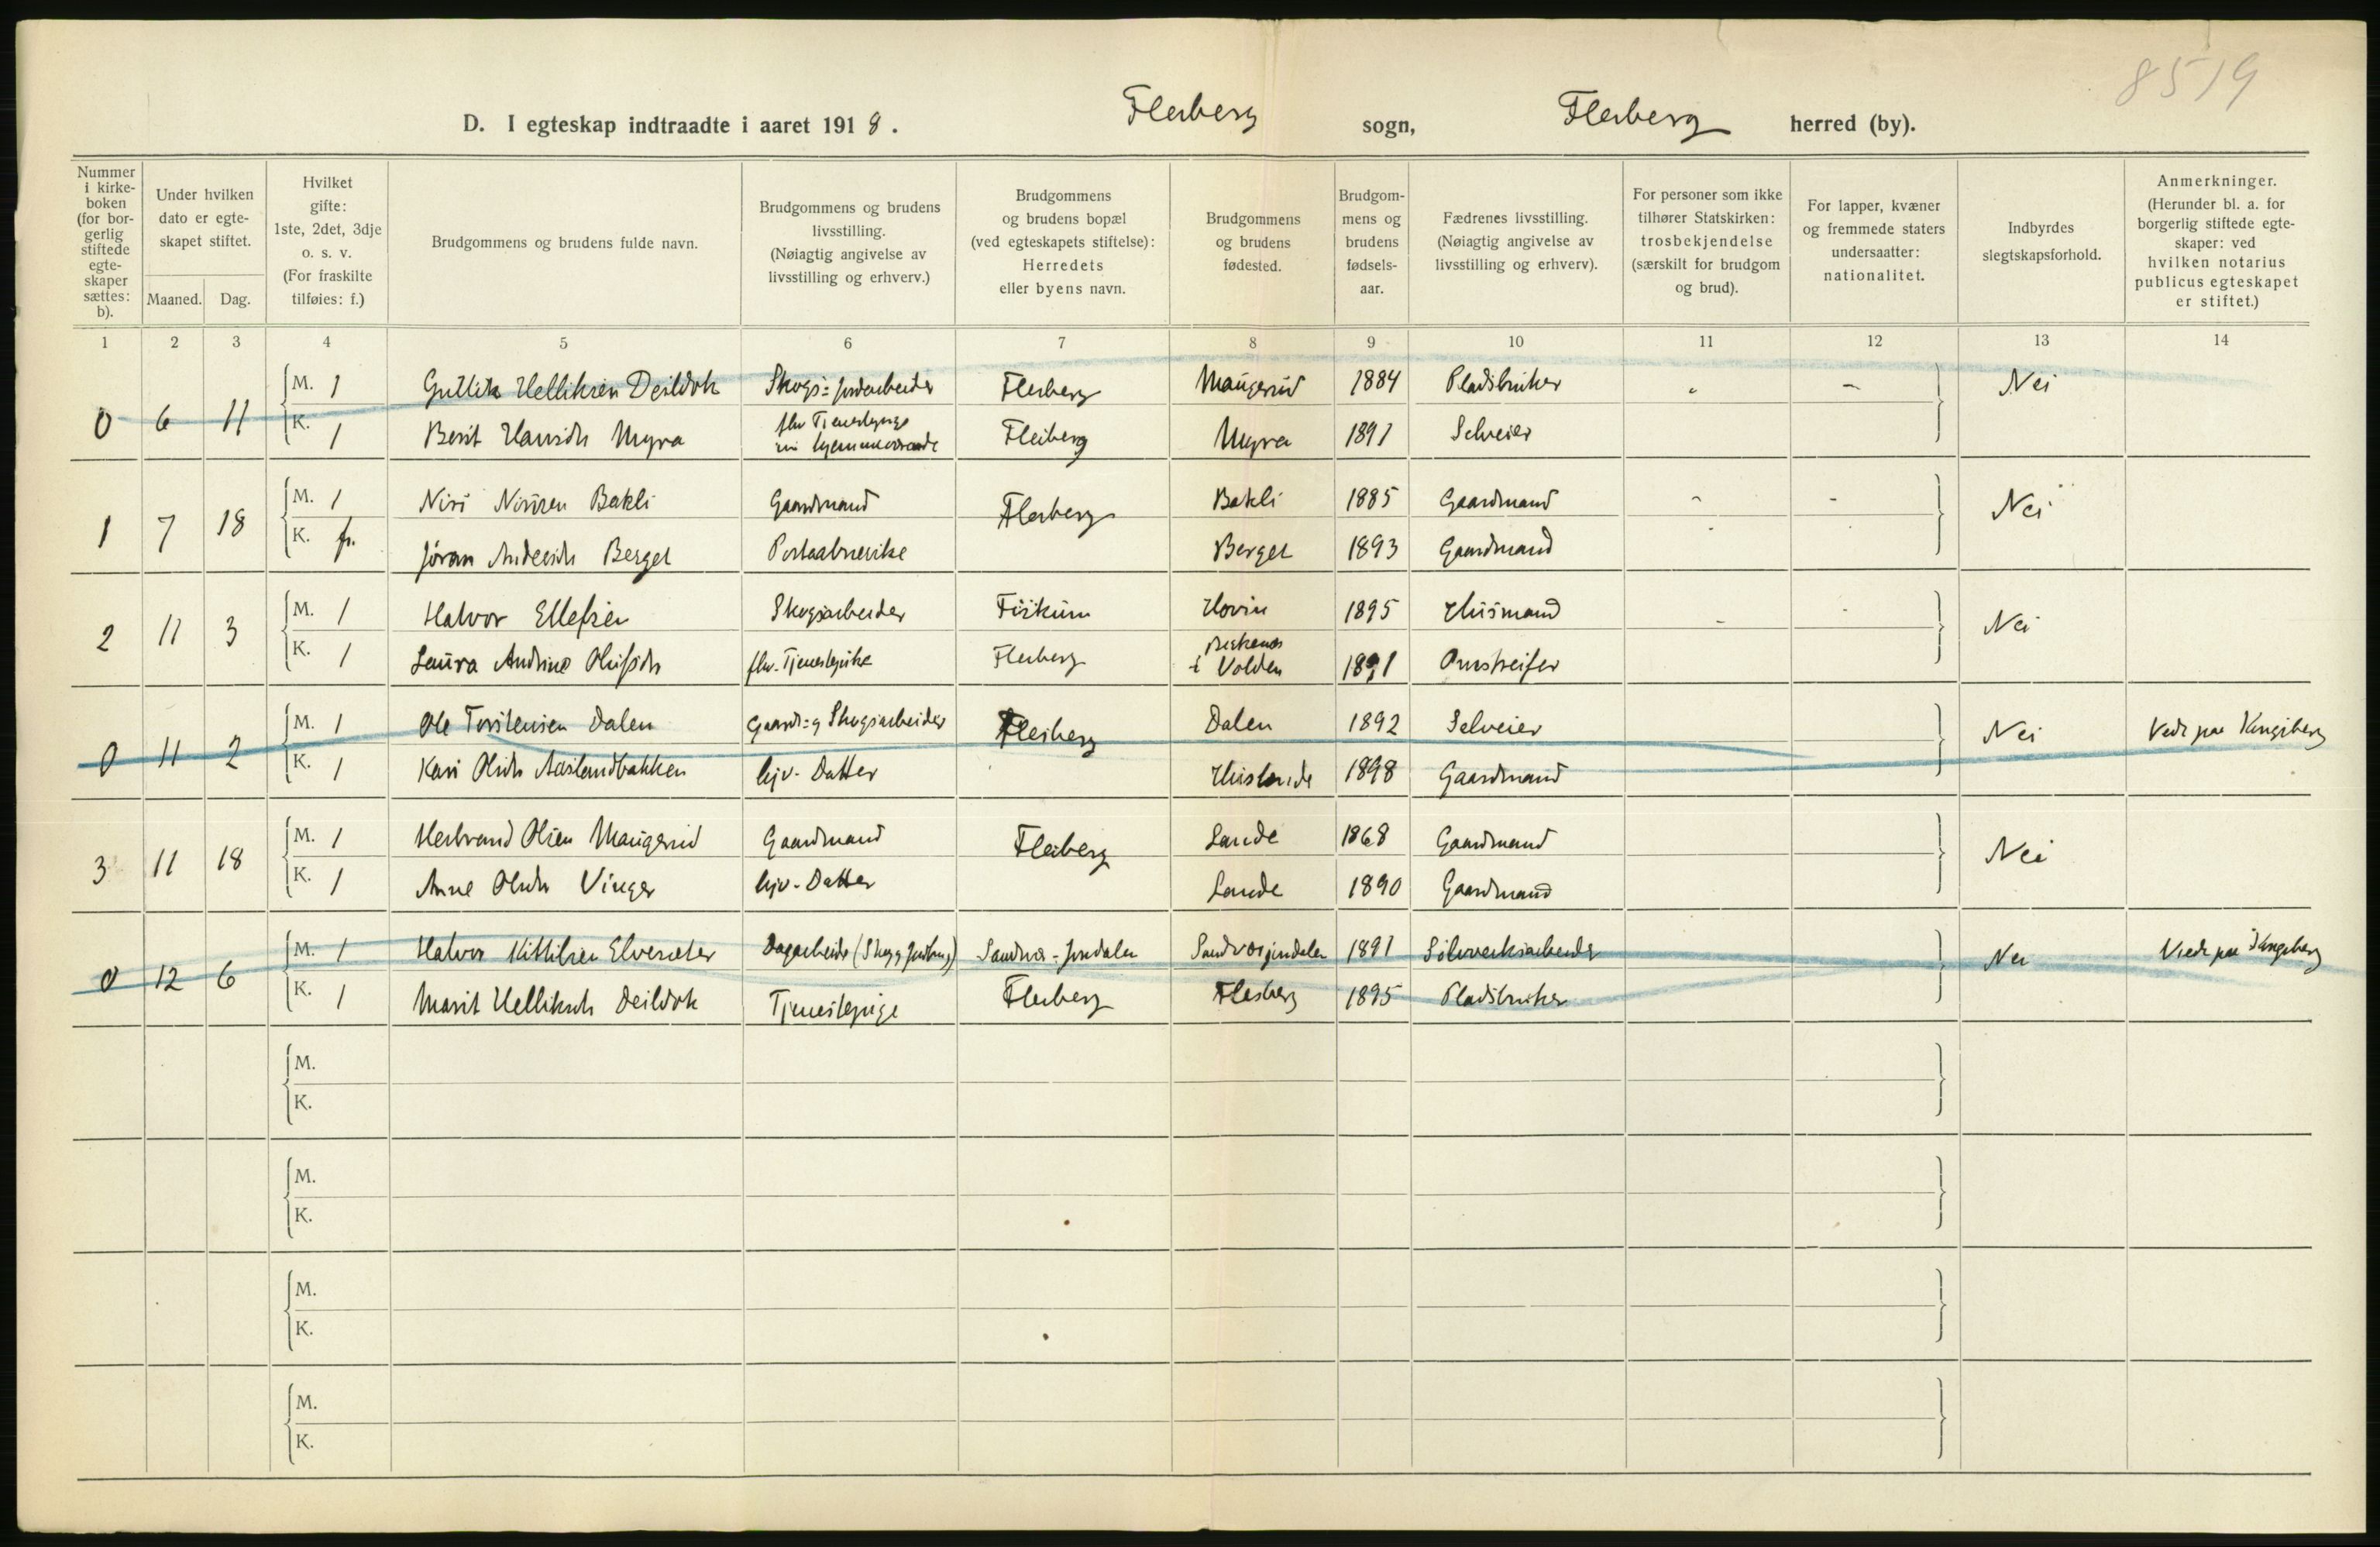 8519
D. I egteskap indtraadte i aaret 1918. Flesberg sogn, Flesberg herred (by).
Nummer i kirke-boken (for bor-gerlig stiftede egte-skaper sættes: b).
Under hvilken dato er egte-skapet stiftet.
Maaned. Dag.
Hvilket gifte: 1ste, 2det, 3dje o. s. v. (For fraskilte tilføies: f.)
Brudgommens og brudens fulde navn.
Brudgommens og brudens livsstilling. (Nøiagtig angivelse av livsstilling og erhverv.)
Brudgommens og brudens bopæl (ved egteskapets stiftelse): Herredets eller byens navn.
Brudgommens og brudens fødested.
Brudgom-mens og brudens fødsels-aar.
Fædrenes livsstilling. (Nøiagtig angivelse av livsstilling og erhverv).
For personer som ikke tilhører Statskirken: trosbekjendelse (særskilt for brudgom og brud).
For lapper, kvæner og fremmede staters undersaatter: nationalitet.
Indbyrdes slegtskapsforhold.
Anmerkninger. (Herunder bl. a. for borgerlig stiftede egte-skaper: ved hvilken notarius publicus egteskapet er stiftet.)
1 2 3 4 5 6 7 8 9 10 11 12 13 14
0 6 11 M. 1 Gullik Helliksen Deildok Skogs= Jordarbeider Flesberg Maugerud 1884 Pladsbruker " - Nei
K. 1 Berit Hansdtr Myra fhv Tjenestepige nu hjemmeværende Flesberg Myra 1891 Selveier
1 7 18 M. 1 Niri Nirisen Bakli Gaardmand Flesberg Bakli 1885 Gaardmand - - Nei
K. f1. Jøran Andersdtr Berget Berget 1893 Gaardmand
2 11 3 M. 1 Halvor Ellefsen Skogsarbeider Fiskum Hovin 1895 Husmand - - Nei
K. 1 Laura Andrine Olufsdtr fhv. Tjenestepike Flesberg i Volden 1891 Omstreifer
0 11 2 M. 1 Ole Torstensen Dalen Gaards= g Skogsarbeider Flesberg Dalen 1892 Selveier Nei Viede paa Kongsberg
K. 1 Kari Olsdtr Aaslandbakken hjv. Datter 1898 Gaardmand
3 11 18 M. 1 Herbrand Olsen Maugerud Gaardmand Flesberg Lande 1868 Gaardmand Nei
K. 1 Anne Olsdtr Vinger hjv. Datter Lande 1890 Gaardmand
0 12 6 M. 1 Halvor Kittilsen Elvesæter Dagarbeider Sandsvær-Jondalen 1891 Sølvverksarbeider Nei Viede paa Kongsberg
K. 1 Marit Helliksdtr Deildok Tjenestepige Flesberg Flesberg 1895 Pladsbruker
M.
K.
M.
K.
M.
K.
M.
K.